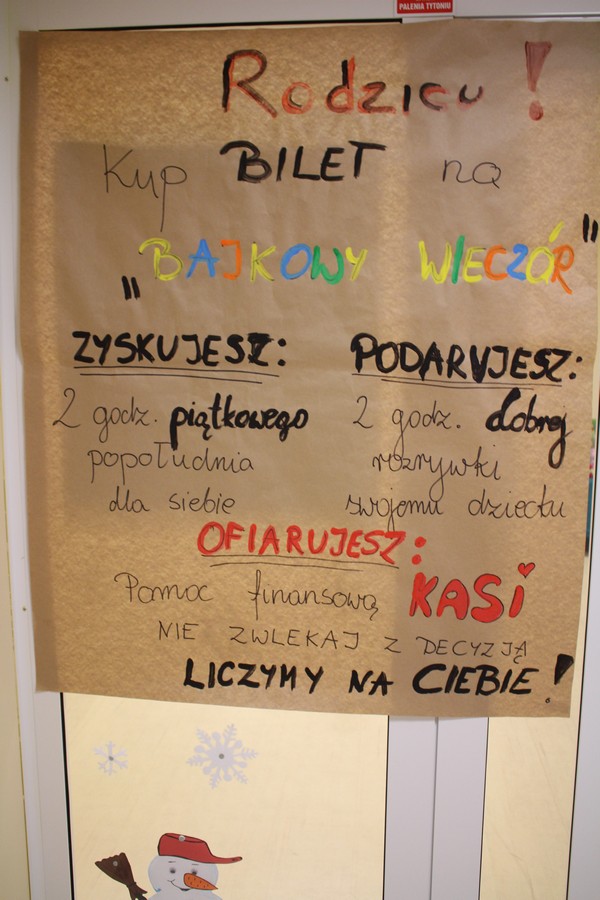 PALENIA TYTONIU
Rodzicu!
Kup BILET na
„BAJKOWY WIECZÓR"
ZYSKUJESZ:
2 godz. piątkowego
popołudnia
dla siebie
PODARUJESZ:
2 godz. dobrej
rozrywki
swojemu dziecku
OFIARUJESZ:
Pomoc finansową KASI
NIE ZWLEKAJ Z DECYZJĄ
LICZYMY NA CIEBIE!